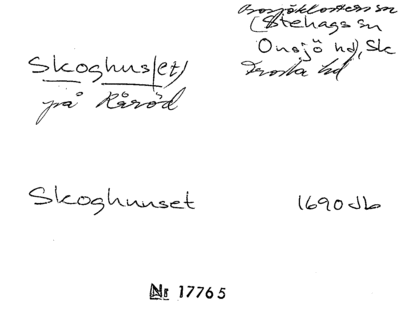 Bosjöklosters sn
(Stehags sn
Onsjö hd), Sk
Frosta hd
Skoghus(et)
på Råröd
Skoghuuset 1690 Jb
Nr 17765